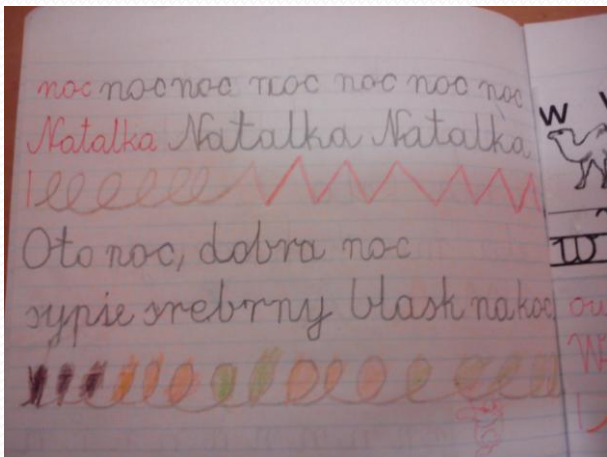 noc noc noc noc noc noc noc
Natalka Natalka Natalka
Oto noc, dobra noc
sypie srebrny blask na koc
W